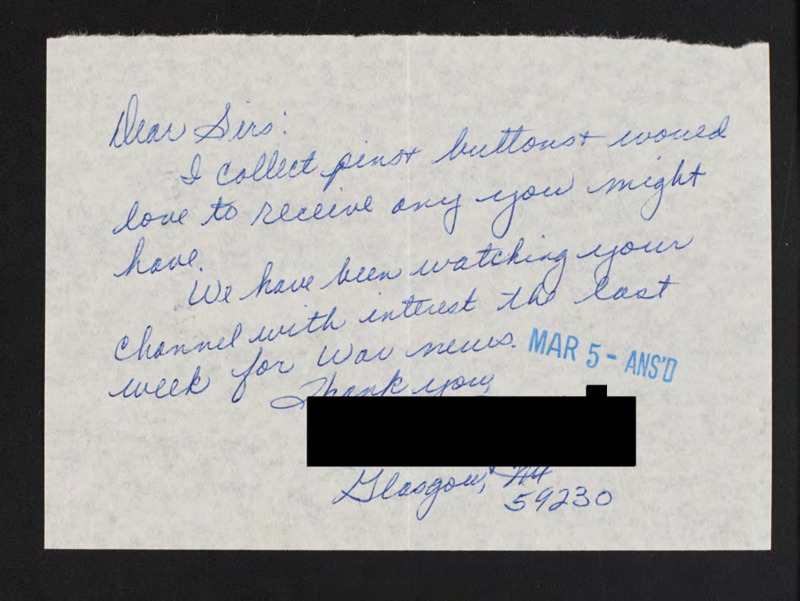 Dear Sirs:
I collect pins + buttons + would
love to receive any you might
have.
We have been watching your
channel with interest the last
week for war news.
MAR 5 - ANS'D
Thank you,
Glasgow, Mt
59230